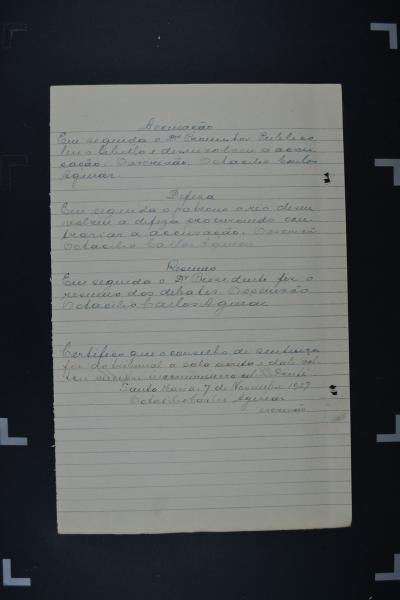 Accusação
Em seguida o Dr Promotor Publico
leu o libello e desenvolveu a accu-
sação. O escrivão, Octacilio Carlos
Aguiar.
Defeza
Em seguida o patrono o réo desen
volveu a defeza procurando con
trariar a accusação. O escrivão
Octacilio Carlos Aguiar
Resumo
Em seguida o Dr Presidente fez o
resumo dos debates. O escrivão
Octacilio Carlos Aguiar
Certifico que o conselho de sentença
foi do tribunal a sala secreta e dali
7 de Novembro 1927
Octacilio Carlos Aguiar
escrivão